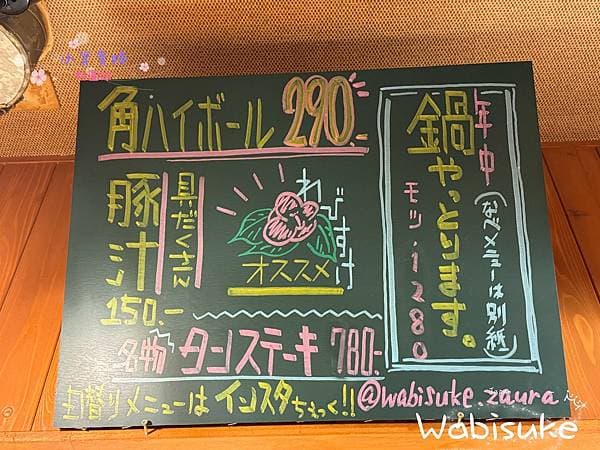 角ハイボール 290.-
具だくさん
豚汁
150.-
わびすけ
オススメ
年中
鍋やっとります。
モツ・1280
メニューは別紙
名物 タンステーキ 780.-
日替りメニューは インスタちぇっく!! @wabisuke.zaura
Wabisuke